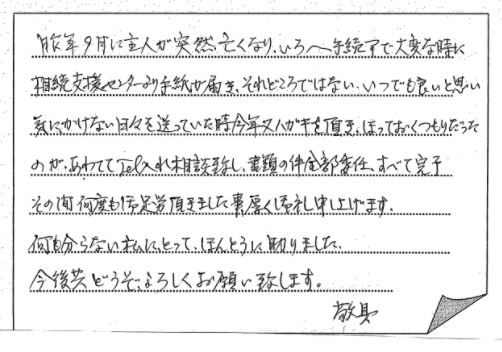 昨年9月に主人が突然亡くなり、いろ〳〵手続アで大変な時に
相続支援センターより手紙が届き、それどころではない、いつでも良いと思い
気にかけない日々を送っていた時今年又ハガキを頂き、ほっておくつもりだった
のが、あわててTel入れ相談致し、書類の件全部委任、すべて完了
その間何度も御足労頂きました事厚く御礼申し上げます。
何も分らない私にとって、ほんとうに助りました。
今後共どうぞよろしくお願い致します。
敬具